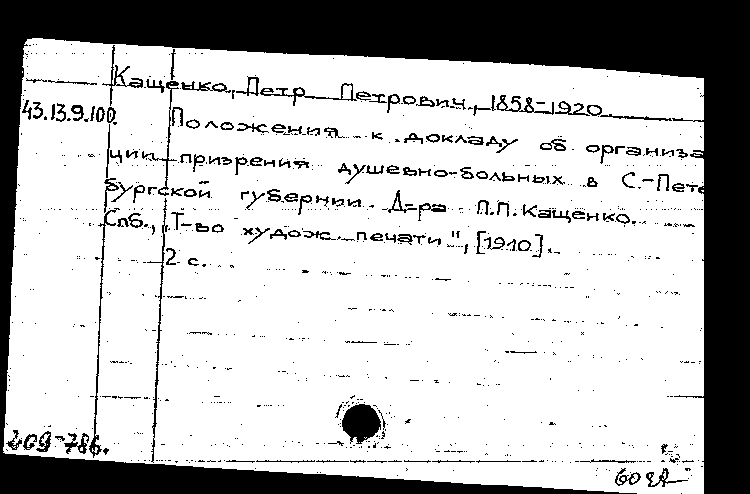 Кащенко, Петр Петрович, 1858-1920
43.13.9.100. Положения к докладу об организа
ции призрения душевно-больных в С.-Пете
бургской губернии. Д-ра П.П.Кащенко.
Спб., "Т-во худож. печати", [1910].
2 с.
209-786.